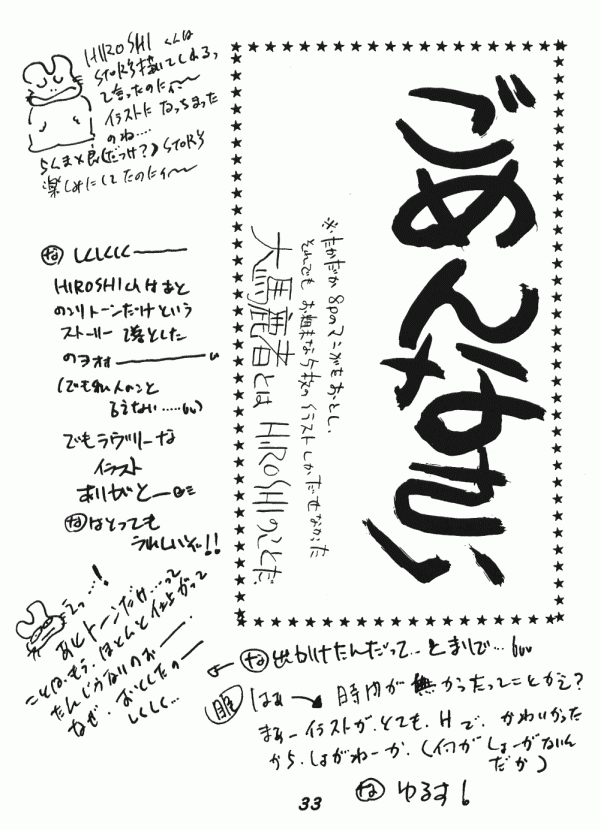 ごめんなさい
※たかだか8pのマンガもおとし、
それでも お粗末な5枚のイラストしかだせなかった
大馬鹿者とは HIROSHIのことだ
HIROSHIくんは
STORY描いてくれるっ
て言ったのにィ〜
イラストに なっちまった
のね....
らくまと良(だっけ?) STORY
楽しみにしてたのにィ〜
な しくしくしく———
HIROSHIくんはあと
のこりトーンだけという
ストーリー 落とした
のヲォォ———
(でも私人のこと
言えない……)
でもラヴリーな
イラスト
ありがとー
なはとっても
うれしいぞ!!
えっ…!
あとトーンだけ…って
ことは、もう、ほとんど仕上がって
たんじゃないのぉー
なぜ、おとしたのー
しくしく…
な 出かけたんだって… とまりで…
はぁ→ 時間が無かったってことかえ?
まぁーイラストが、とても、Hで、かわいかった
から、しょがねーか、(何がしょーがないん
だか)
な ゆるす
33